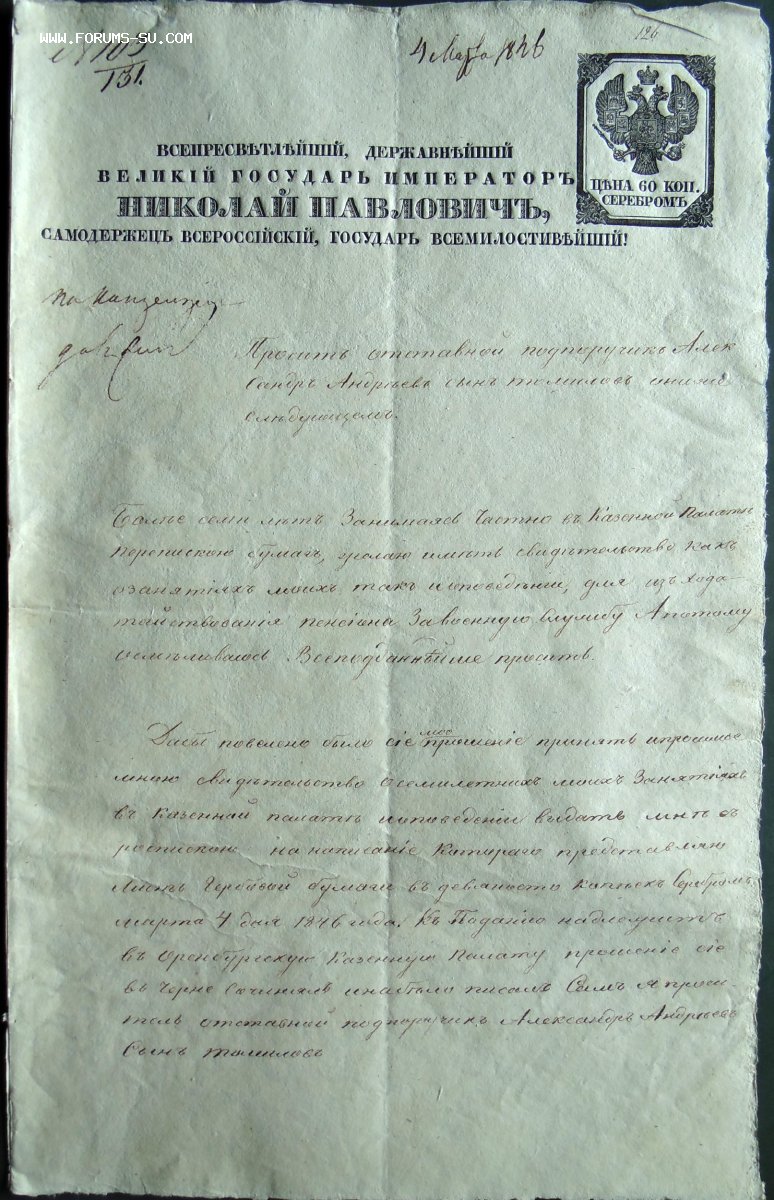 WWW.FORUMS-SU.COM
131.
4 Марта 1846
126
ВСЕПРЕСВѢТЛѢЙШІЙ, ДЕРЖАВНѢЙШІЙ
ВЕЛИКІЙ ГОСУДАРЬ ИМПЕРАТОРЪ
НИКОЛАЙ ПАВЛОВИЧЪ,
САМОДЕРЖЕЦЪ ВСЕРОССІЙСКІЙ, ГОСУДАРЬ ВСЕМИЛОСТИВѢЙШІЙ!
ЦѢНА 60 КОП.
СЕРЕБРОМЪ
Проситъ отставной подпоручикъ Алек
сандръ Андрѣевъ сынъ томиловъ
слѣдующемъ.
Болѣе семи лѣтъ Занимаясь Частно въ Казенной Палатѣ
перепискою бумагъ, желаю имѣть свидѣтельство какъ
озанятіяхъ моихъ такъ иповеденіи, для изъ хода-
тайствованія пенсіона За военную службу Апотому
осмѣливаюсь Всеподданнѣйше просить.
Дабы повелено было сіе мое прошеніе принять ипросимое
мною свидѣтельство осемилетнихъ моихъ Занятіяхъ
въ Казенной палатѣ иповедении выдать мнѣ съ
роспискою на написаніе Котораго представляю
Листъ Гербовой бумаги въ девяносто копѣекъ Серебромъ
марта 4 дня 1846 года. Къ Поданію надлежитъ
въ Оренбургскую Казенную Палату прошеніе сіе
въ Черне Сочинялъ инабело писалъ Самъ я проси-
тель отставной подпоручикъ Александръ Андрѣевъ
Сынъ томиловъ